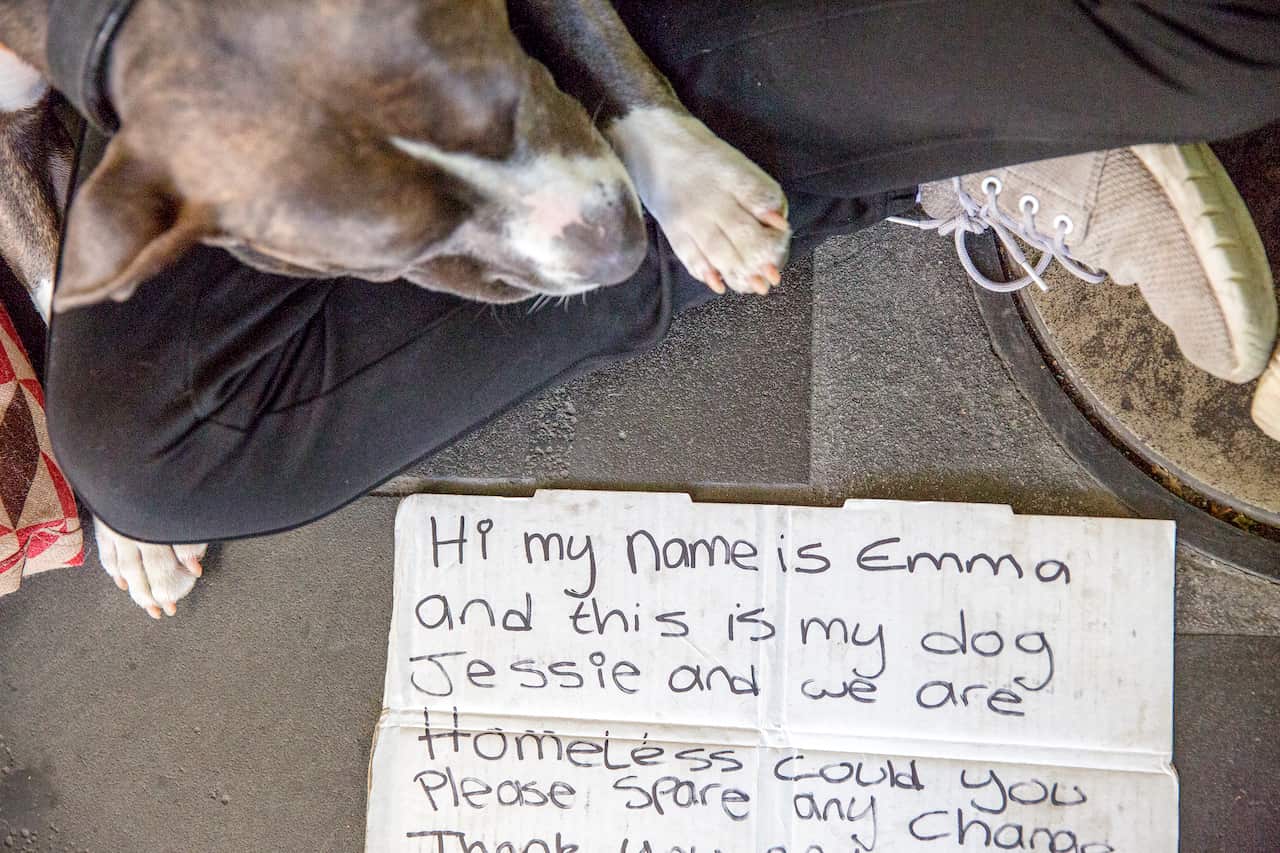 Hi my name is Emma
and this is my dog
Jessie and we are
Homeless could you
please spare any change
Thank you